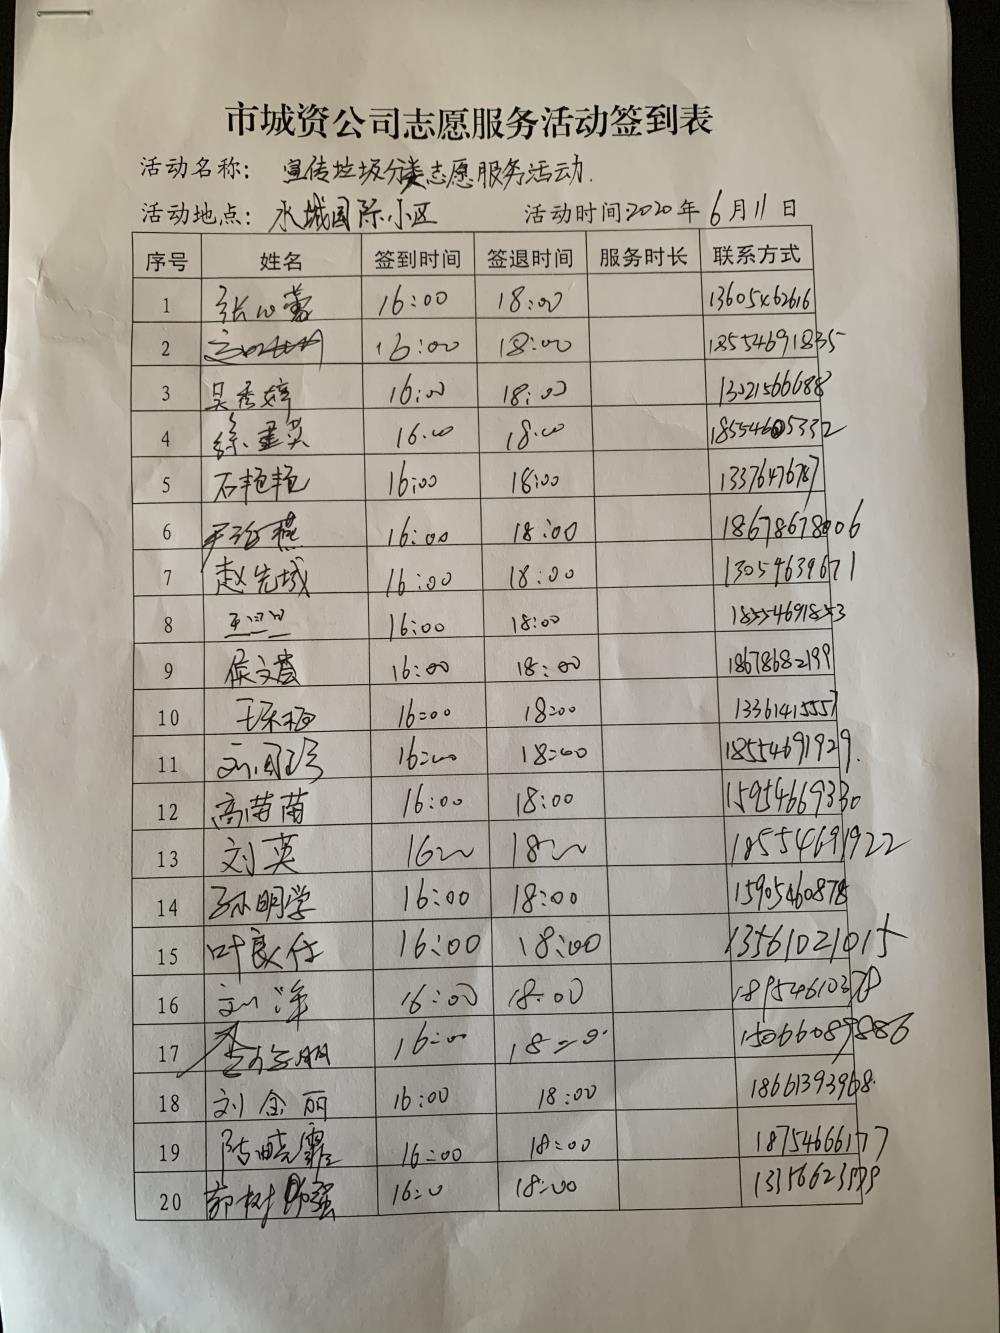 市城资公司志愿服务活动签到表
活动名称: 宣传垃圾分类志愿服务活动.
活动地点: 水城国际小区 活动时间2020年6月11日
序号 姓名 签到时间 签退时间 服务时长 联系方式
1 张心蕾 16:00 18:00 13605462616
2 16:00 18:00 18554691835
3 吴秀婷 16:00 18:00 13021566688
4 徐重英 16:00 18:00 18554605332
5 石艳艳 16:00 18:00 13376476787
6 16:00 18:00 18678678006
7 赵先城 16:00 18:00 13054639671
8 16:00 18:00 18554691853
9 侯文霞 16:00 18:00 18678682199
10 16:00 18:00 13361415557
11 刘国珍 16:00 18:00 18554691929.
12 高苗苗 16:00 18:00 15954669330
13 刘英 16:00 18:00 18554691922
14 孙明学 16:00 18:00 15905460878
15 叶良仕 16:00 18:00 13561021015
16 刘洋 16:00 18:00 18954610378
17 16:00 18:00
18 刘金丽 16:00 18:00 18661393968.
19 陈晓霏 16:00 18:00 18754666177
20 郭树强 16:00 18:00